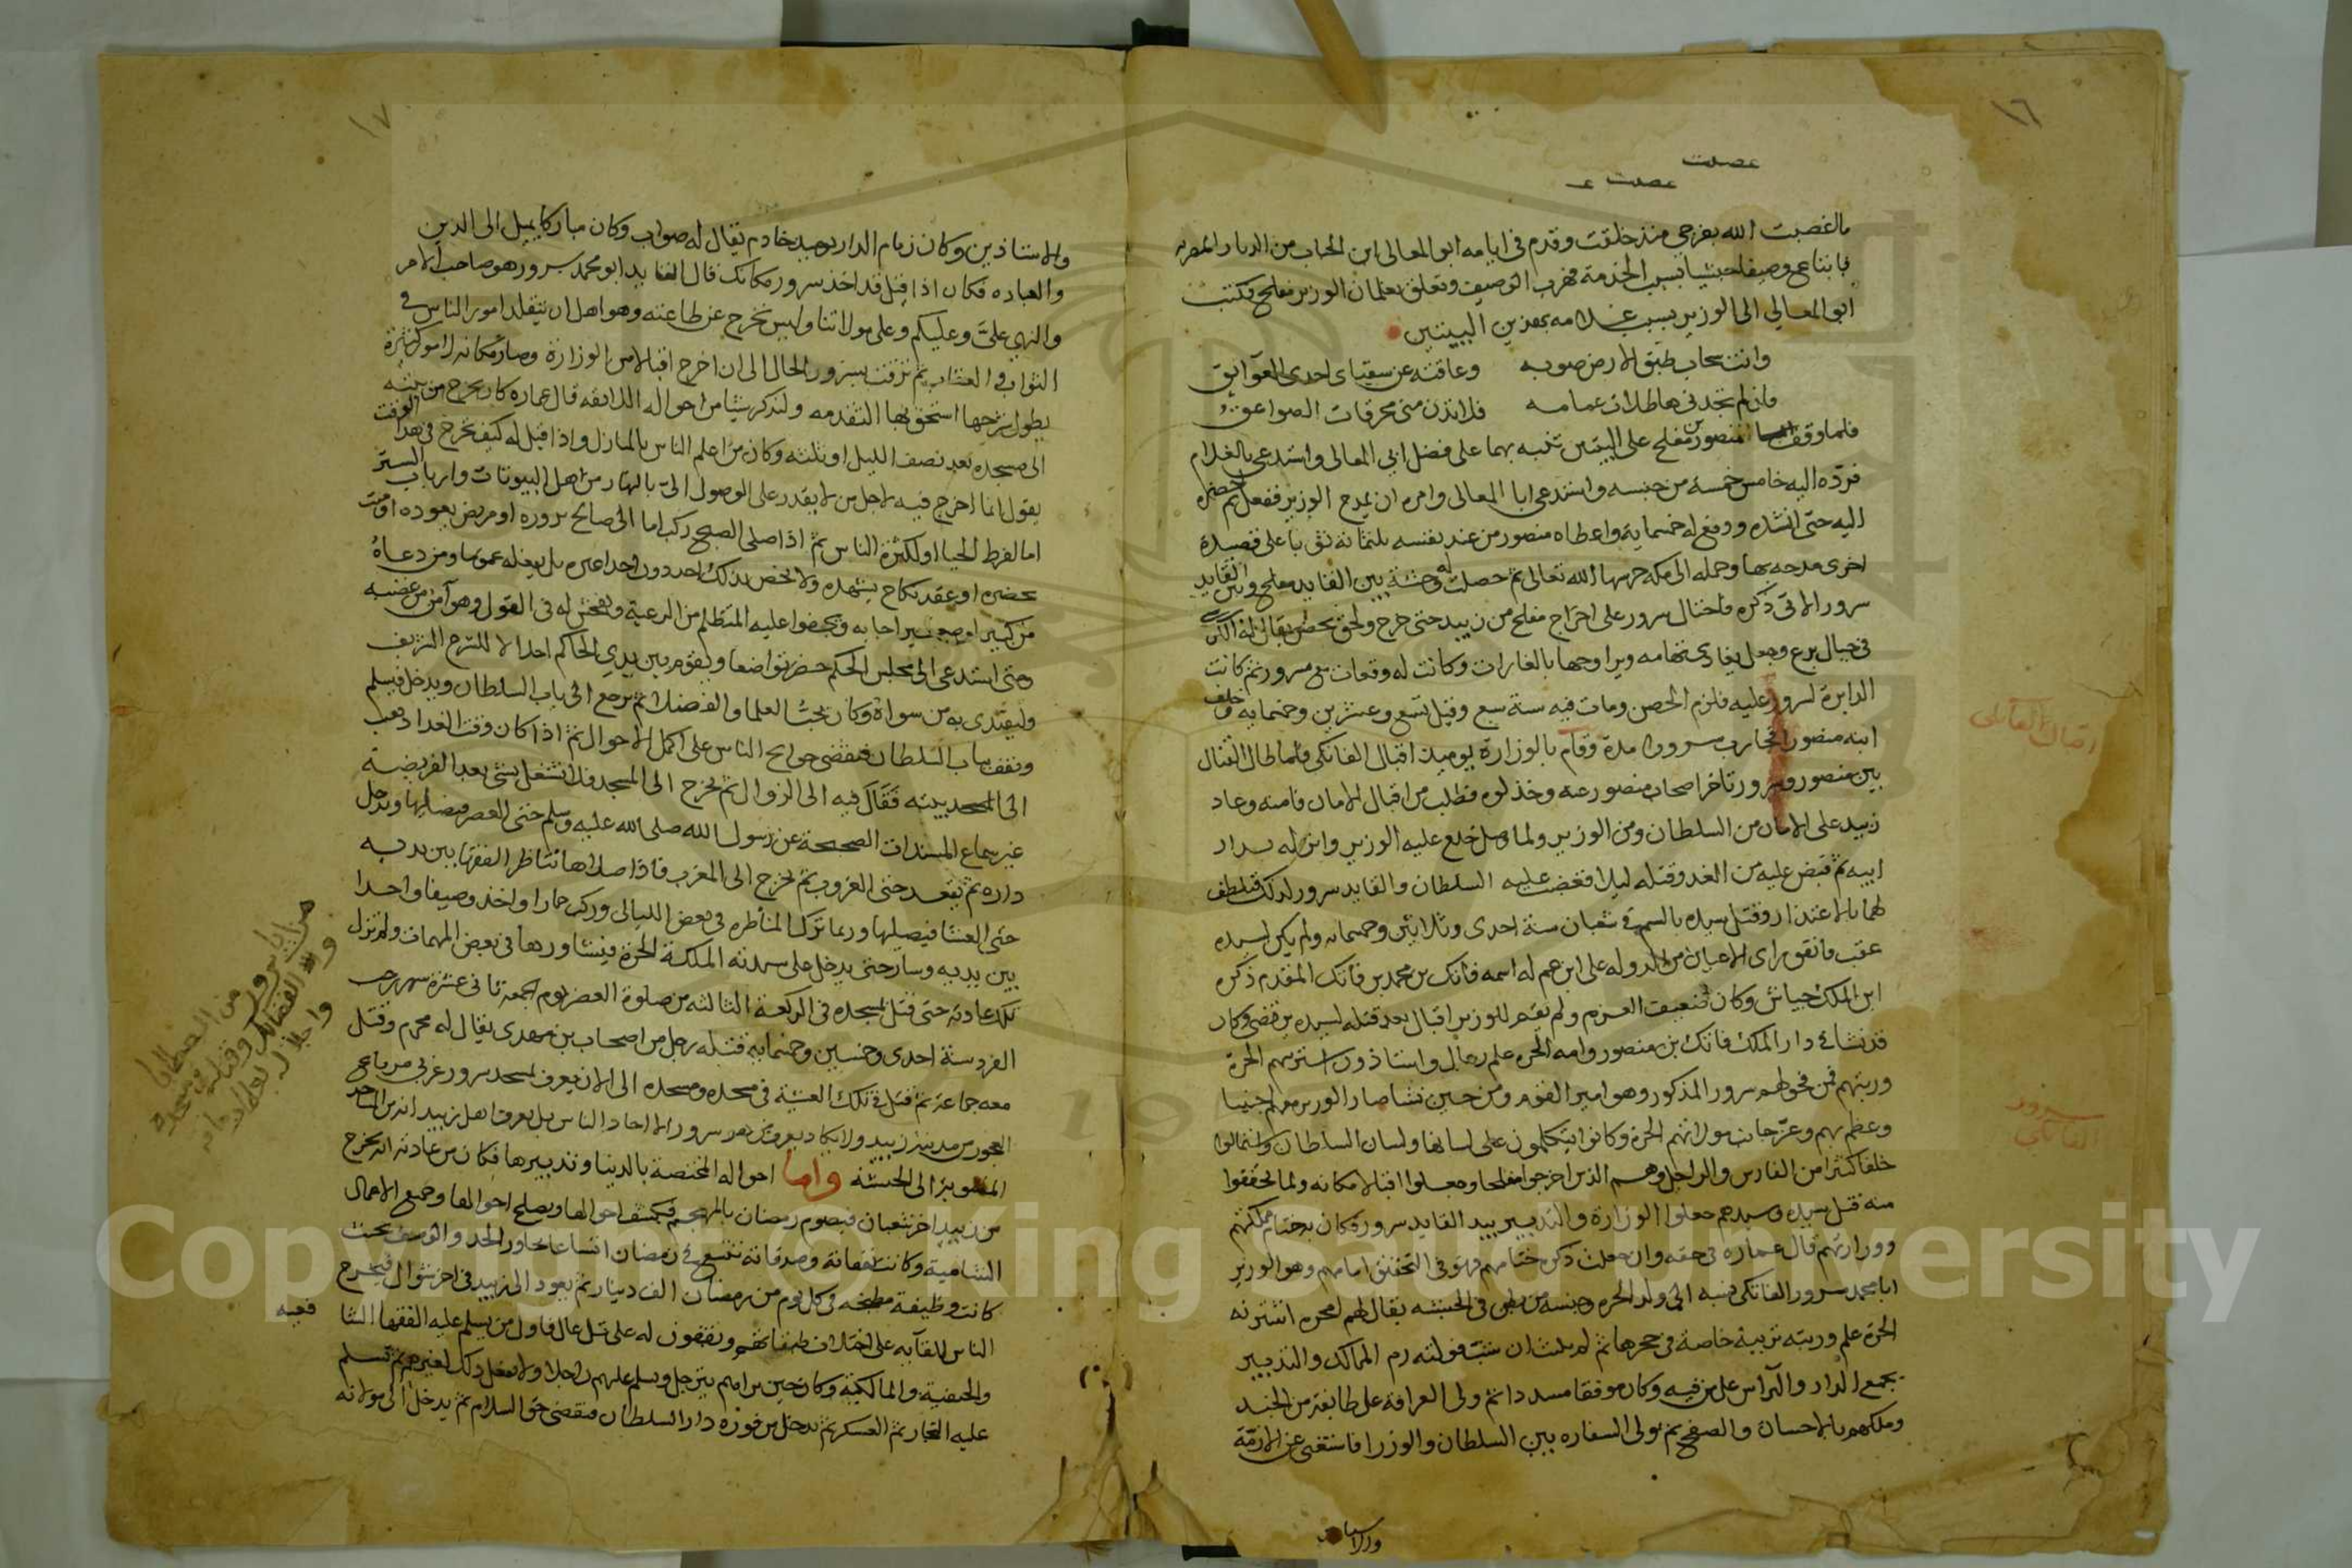 ١٦
عصمت
عصمت
ما اغصبت الله بفرجي منذ خلقت وقدم في ايامه ابو المعالي ابن الحباب من الديار المصريه
فابتاع وصيفا حبشيا بسبب الخدمة فهرب الوصيف وتعلق بغلمان الوزير مفلح فكتب
ابو المعالي الى الوزير بسبب غلامه بهذين البيتين
وانت سحاب طبق الارض صوبه وعاقته عن سقياي احدى العوآئق
فان لم تجدني هاطلات غمامه فلا تدن مني محرقات الصواعق
فلما وقف منصور بن مفلح على البيتين تنبه بهما على فضل ابي المعالي واستدعى بالغلام
فرده اليه خامس خمسة من جنسه واستدعى ابا المعالي وامره ان يمدح الوزير ففعل ثم احضره
اليه حتى انشده ودفع له خمسماية واعطاه منصور من عند نفسه ثلثمائة ثوبا على قصيدة
اخرى مدحه بها وحمله الى مكه حرسها الله تعالى ثم حصلت له وحشة بين القايد مفلح وبين القايد
سرور الاتي ذكره فاحتال سرور على اخراج مفلح من زبيد حتى خرج ولحق بحصن يقال له الكرش
في جبال برع وجعل يغادي تهامه ويراوحها بالغارات وكانت له وقعات مع سرور ثم كانت
الدايرة لسرور عليه فلزم الحصن ومات فيه سنة سبع وقيل تسع وعشرين وخمسمايه وخلف
ابنه منصورا فحارب سرورا مدة وقام بالوزارة يوميذ اقبال الفاتكي فلما طال القتال
بين منصور وسرور تاخر اصحاب منصور عنه وخذلوه فطلب من اقبال الامان فامنه وعاد
زبيد على الامان من السلطان ومن الوزير ولما وصل خلع عليه الوزير وانزله بدار
ابيه ثم قبض عليه من الغد وقتله ليلا فغضب عليه السلطان والقايد سرور لذلك فتلطف
لهما بالاعتذار وقتل سيده بالسم في شعبان سنة احدى وثلاثين وخمسمايه ولم يكن لسيده
عقب فاتفق راى الاعيان من الدوله على ابن عم له اسمه فاتك بن محمد بن فاتك المقدم ذكره
ابن الملك جياش وكان ضعيف العزم ولم يقم للوزير اقبال بعد قتله لسيده من قضى وكان
قد نشا في دار الملك فاتك بن منصور وامه الحره علم رجال واستاذون اشترتهم الحرة
وربتهم فمن فحولهم سرور المذكور وهو امير القوم ومن حين نشا صار الوزير معهم اجنبيا
وعظم بهم وعز جانب مولاتهم الحرة وكانوا يتكلمون على لسانها ولسان السلطان واستمالوا
خلقا كثيرا من الفارس والراجل وهم الذين اخرجوا مفلحا وجعلوا اقبالا مكانه ولما تحققوا
منه قتل سيده وسيدهم جعلوا الوزارة والتدبير بيد القايد سرور فكان به ختام مملكتهم
ووزارتهم قال عماره في حقه وان جعلت ذكره ختامهم فهو في التحقيق امامهم وهو الوزير
ابا محمد سرور الفاتكي نسبه الى ولد الحره وجنسه من بطن في الحبشه يقال لهم امحره اشترته
الحرة علم وربته تربية خاصة في حجرها ثم لم يلبث ان شب فولته زم المماليك والتدبير
بجمع الدار والرآس على من فيه وكان موفقا مسددا ثم ولى العرافة على طايفة من الجند
وملكهم بالاحسان والصفح ثم تولى السفاره بين السلطان والوزرا فاستغنى عن الازمة
والاستاذين
اقبال الفاتكي
سرور الفاتكي
١٧
والاستاذين وكان زمام الدار يوميد خادم يقال له صواب وكان مباركا يميل الى الدين
والعباده فكان اذا قيل قد اخذ سرور مكانك قال القايد ابو محمد سرور هو صاحب الامر
والنهي علىَّ وعليكم وعلى مولاتنا وليس نخرج عن طاعته وهو اهل ان يتقلد امور الناس في
الثواب والعقاب ثم ترقت بسرور الحال الى ان اخرج اقبالا من الوزارة وصار مكانه لامور كثيرة
يطول شرحها استحق بها التقدمه ولنذكر شيا من احواله اللائقه قال عماره كان يخرج من بيته
الى مسجده بعد نصف الليل او ثلثه وكان من اعلم الناس بالمنازل واذا قيل له كيف تخرج في هذا الوقت
يقول انما اخرج فيه لاجل من لا يقدر على الوصول الىّ بالنهار من اهل البيوتات وارباب الستر
اما لفرط الحيا او لكثرة الناس ثم اذا صلى الصبح ركب اما الى صالح يزوره او مريض يعوده او ميت
يحضره او عقد نكاح يشهده ولا يخص بذلك احد دون احد غيره بل يفعله عموما ومن دعاه
من كبير او صغير اجابه وكان المتظلم من الرعية يفحش له في القول وهو آمن من غضبه
ومتى استدعى الى مجلس الحكم حضر تواضعا ويقوم بين يدي الحاكم اجلالا للشرع الشريف
وليقتدي به من سواه وكان يحب العلما والفضلا ثم يرجع الى باب السلطان ويدخل فيسلم
ويقف بباب السلطان فتقضى حوايج الناس على اكمل الاحوال ثم اذا كان وقت الغدا ذهب
الى بيته فقال فيه الى الزوال ثم يخرج الى المسجد فلا يشتغل بشي بعد الفريضة
غير سماع المسندات الصحيحة عن رسول الله صلى الله عليه وسلم حتى العصر فيصليها ويدخل
داره ثم يقعد حتى الغروب ثم يخرج الى المغرب فاذا صلاها تناظر الفقها بين يديه
حتى العشا فيصليها وربما ترك المناظره في بعض الليالي وركب حمارا واخذ وصيفا واحدا
بين يديه وسار حتى يدخل على سيدته الملكة الحرة فيشاورها في بعض المهمات ولم تزل
تلك عادته حتى قتل بمسجده في الركعة الثالثه من صلوة العصر يوم الجمعه ثاني عشر شهر رجب
الفرد سنة احدى وخمسين وخمسمايه قتله رجل من اصحاب بن مهدي يقال له محرم وقتل
معه جماعة ثم قتل في تلك العشية في مسجده ومسجده الى الان يعرف بمسجد سرور غربي مرباع
العجوز من مدينة زبيد ولا يكاد يعرف سرور الا احاد الناس بل يعرف اهل زبيد انه من المساجد
المنسوبة الى الحبشه واما احواله المختصة بالدنيا وتدبيرها فكان من عادته انه يخرج
من زبيد اخر شعبان فيصوم رمضان بالمهجم فيكشف احوالها ويصلح احوالها وجميع الاعمال
الشامية وكانت نفقاته وصدقاته تتسع في رمضان اتساعا يتجاوز الحد والوصف بحيث
كانت وظيفة مطبخه في كل يوم من رمضان الف دينار ثم يعود الى زبيد في اخر شوال فيخرج
الناس للقآيه على اختلاف طبقاتهم ويقفون له على تل عال فاول من يسلم عليه الفقها الشافعيه
والحنفية والمالكية وكان حين يراهم يترجل ويسلم عليهم راجلا ولا يفعل ذلك لغيرهم ثم تسلم
عليه التجار ثم العسكر ثم يدخل من فوره دار السلطان فيقضي حق السلام ثم يدخل الى مولاته